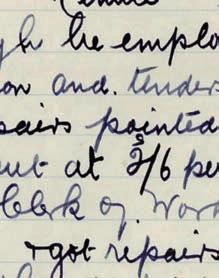 he emplo
on and. tenders
pairs pointed
out at 3/6 pe
Clerk of. Work
+ got repairs